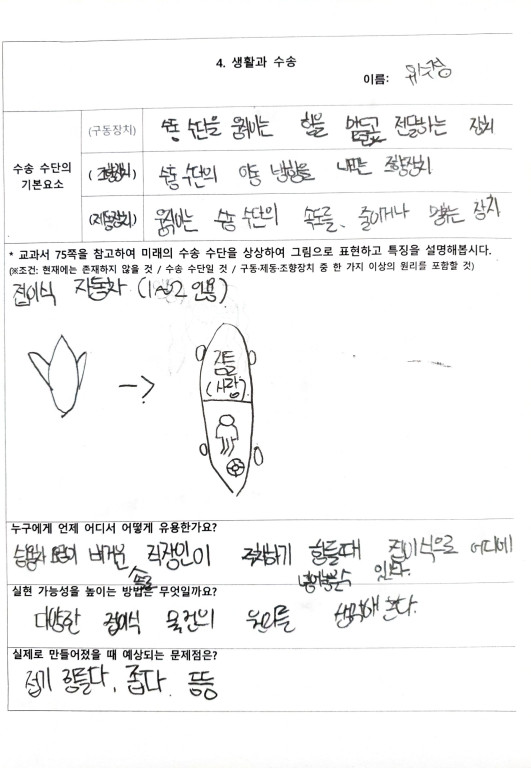 4. 생활과 수송
이름:
수송 수단의
기본요소
(구동장치) 수송 수단을 움직이는 힘을 얻고 전달하는 장치
(조향장치) 수송 수단의 이동 방향을 조향장치
(제동장치) 움직이는 수송 수단의 속도를 줄이거나 멈추는 장치
* 교과서 75쪽을 참고하여 미래의 수송 수단을 상상하여 그림으로 표현하고 특징을 설명해봅시다.
(※조건: 현재에는 존재하지 않을 것 / 수송 수단일 것 / 구동·제동·조향장치 중 한 가지 이상의 원리를 포함할 것)
접이식 자동차 (1~2인용)
(사람)
누구에게 언제 어디서 어떻게 유용한가요?
승용차 버거운 직장인이 주차하기 힘들때 접이식으로 어디에
넣어놓을수 있다.
실현 가능성을 높이는 방법은 무엇일까요?
다양한 접이식 물건의 원리를 생각해 본다.
실제로 만들어졌을 때 예상되는 문제점은?
접기 힘들다, 좁다. 등등